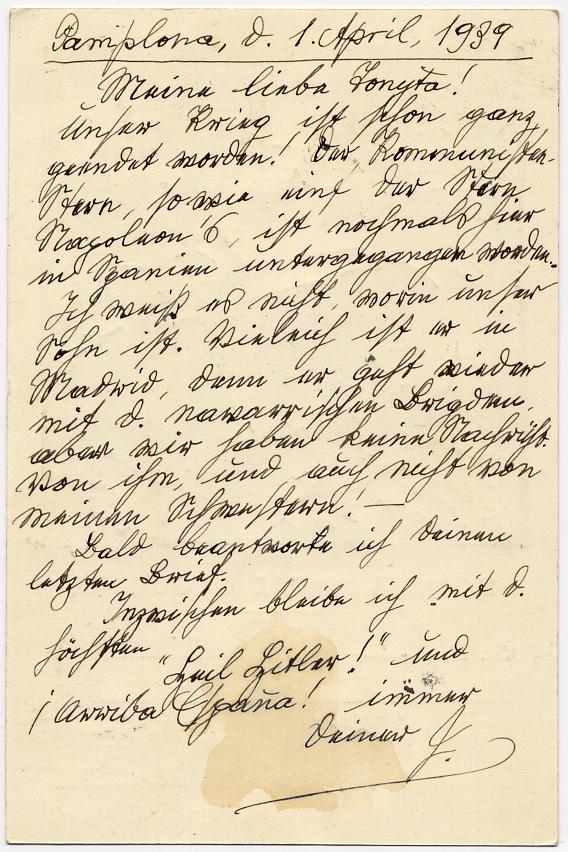 Pamplona, d. 1. April, 1939
Meine liebe Tonyta!
Unser Krieg ist schon ganz
geendet worden! Der Kommunisten-
Stern, so wie einst der Stern
Napoleon's, ist nochmals hier
in Spanien untergegangen worden.
Ich weiß es nicht, worin unser
Sohn ist. Vieleich ist er in
Madrid, denn er geht wieder
mit d. navarrischen Brigden,
aber wir haben keine Nachricht
von ihm, und auch nicht von
meinen Schwestern! —
Bald beantworte ich Deinen
letzten Brief.
Inzwischen bleibe ich mit d.
höchsten "Heil Hitler!" und
¡Arriba España! immer
Deiner